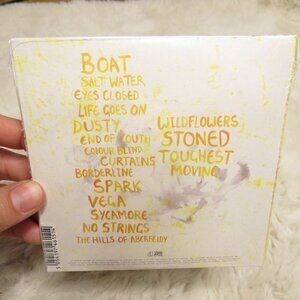 BOAT
SALT WATER
EYES CLOSED
LIFE GOES ON
DUSTY
END OF YOUTH
COLOUR BLIND
CURTAINS
BORDERLINE
SPARK
VEGA
SYCAMORE
NO STRINGS
THE HILLS OF ABERFEIDY
WILDFLOWERS
STONED
TOUGHEST
MOVING